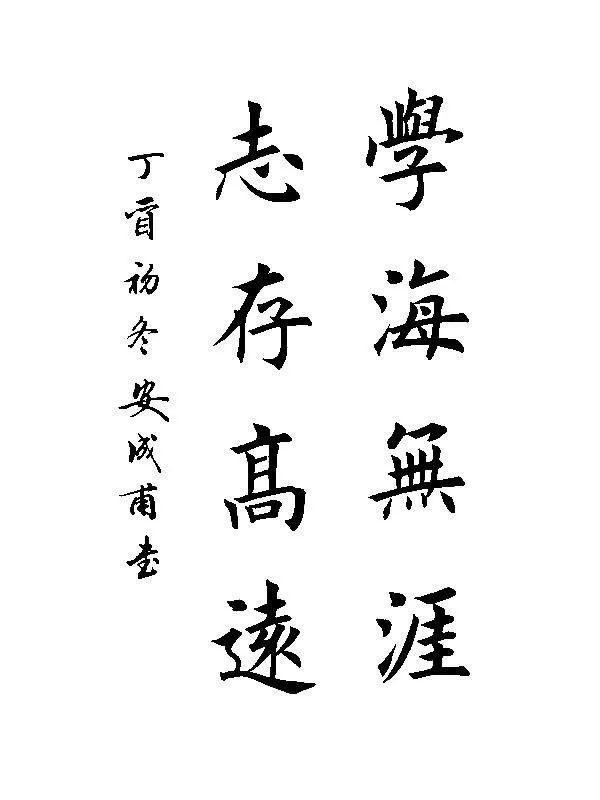 學海無涯
志存高遠
丁酉初冬安成甫书